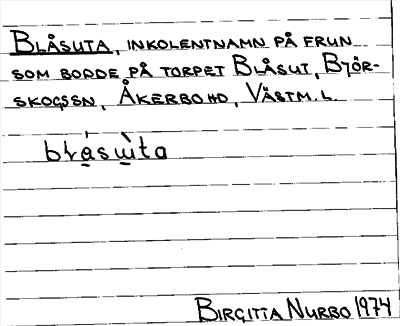 BLÅSUTA, INKOLENTNAMN PÅ FRUN
SOM BODDE PÅ TORPET BLÅSUT, BJÖR-
SKOGSSN, ÅKERBO HD, VÄSTM. L.
blásɯ̀ta
BIRGITTA NURBO 1974